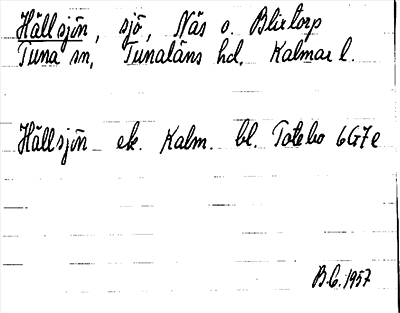 Hällsjön, sjö, Näs o. Blixtorp
Tuna sn, Tunaläns hd, Kalmar l.
Hällsjön ek. Kalm. bl. Totebo 6G7e
B.C. 1957